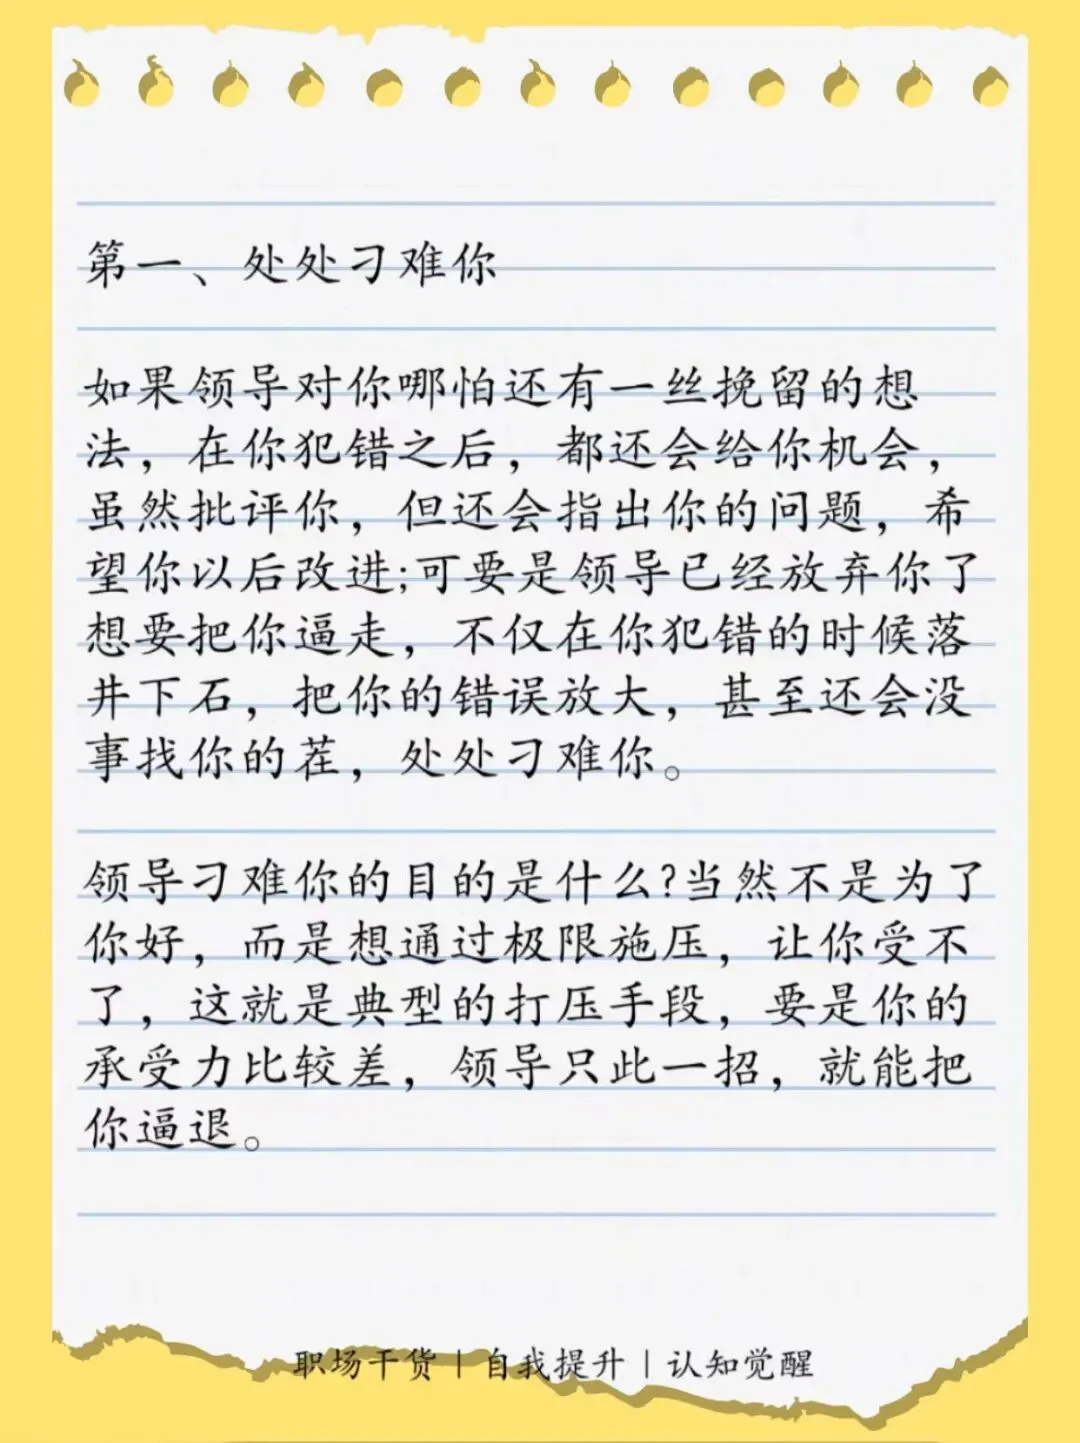 第一、处处刁难你
如果领导对你哪怕还有一丝挽留的想
法，在你犯错之后，都还会给你机会，
虽然批评你，但还会指出你的问题，希
望你以后改进;可要是领导已经放弃你了
想要把你逼走，不仅在你犯错的时候落
井下石，把你的错误放大，甚至还会没
事找你的茬，处处刁难你。
领导刁难你的目的是什么?当然不是为了
你好，而是想通过极限施压，让你受不
了，这就是典型的打压手段，要是你的
承受力比较差，领导只此一招，就能把
你逼退。
职场干货丨自我提升丨认知觉醒